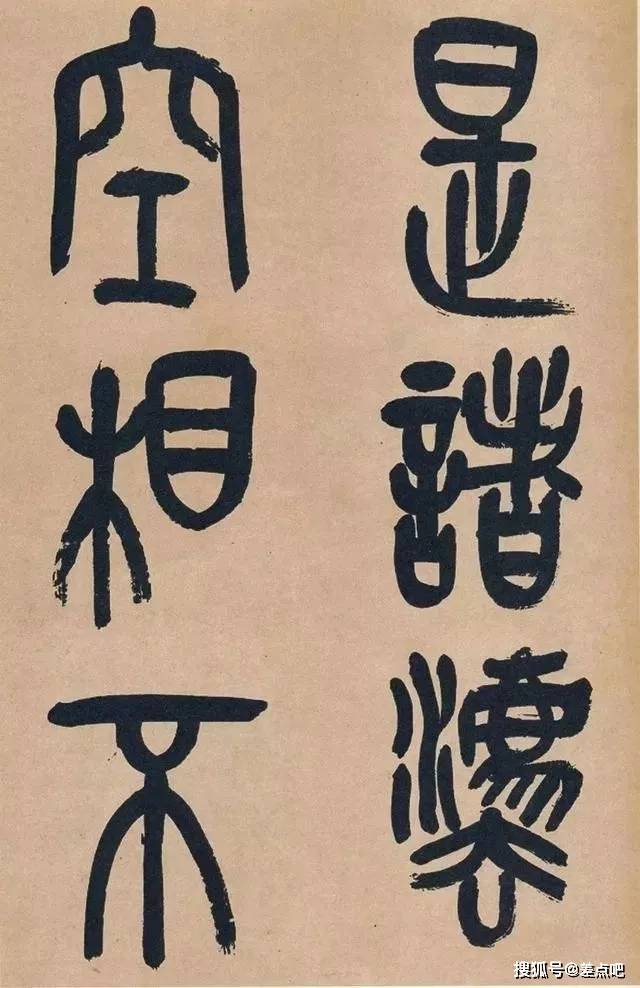 是諸灋
空相不
搜狐号@差点吧